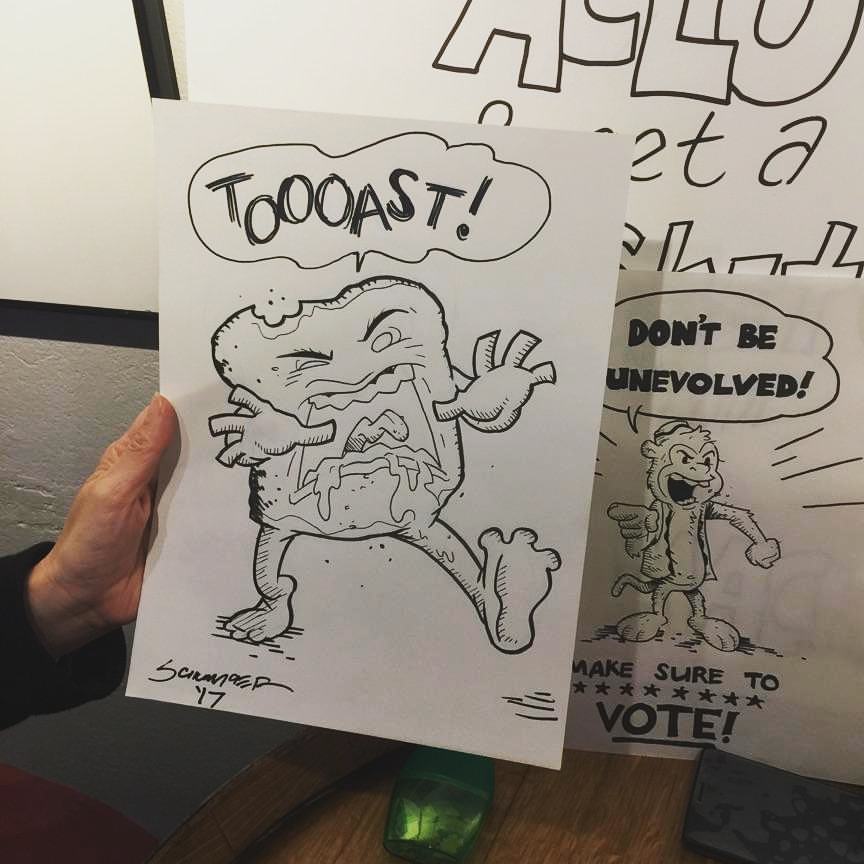 ACLU
get a
TOOOAST!
DON'T BE
UNEVOLVED!
MAKE SURE TO
VOTE!
'17